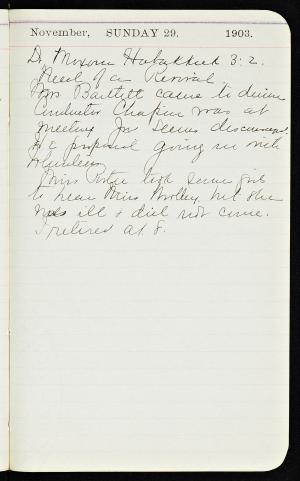 November, SUNDAY 29. 1903.
Dr. Moxom Habakkuk 3:2.
Need of a Revival.
Mrs Bartlett came to dinner
Conductor Chapin was at
meeting. Jr seems discouraged.
He proposed going in with
Miss took some girls
to hear Miss but she
was ill & did not come.
I retired at 8.